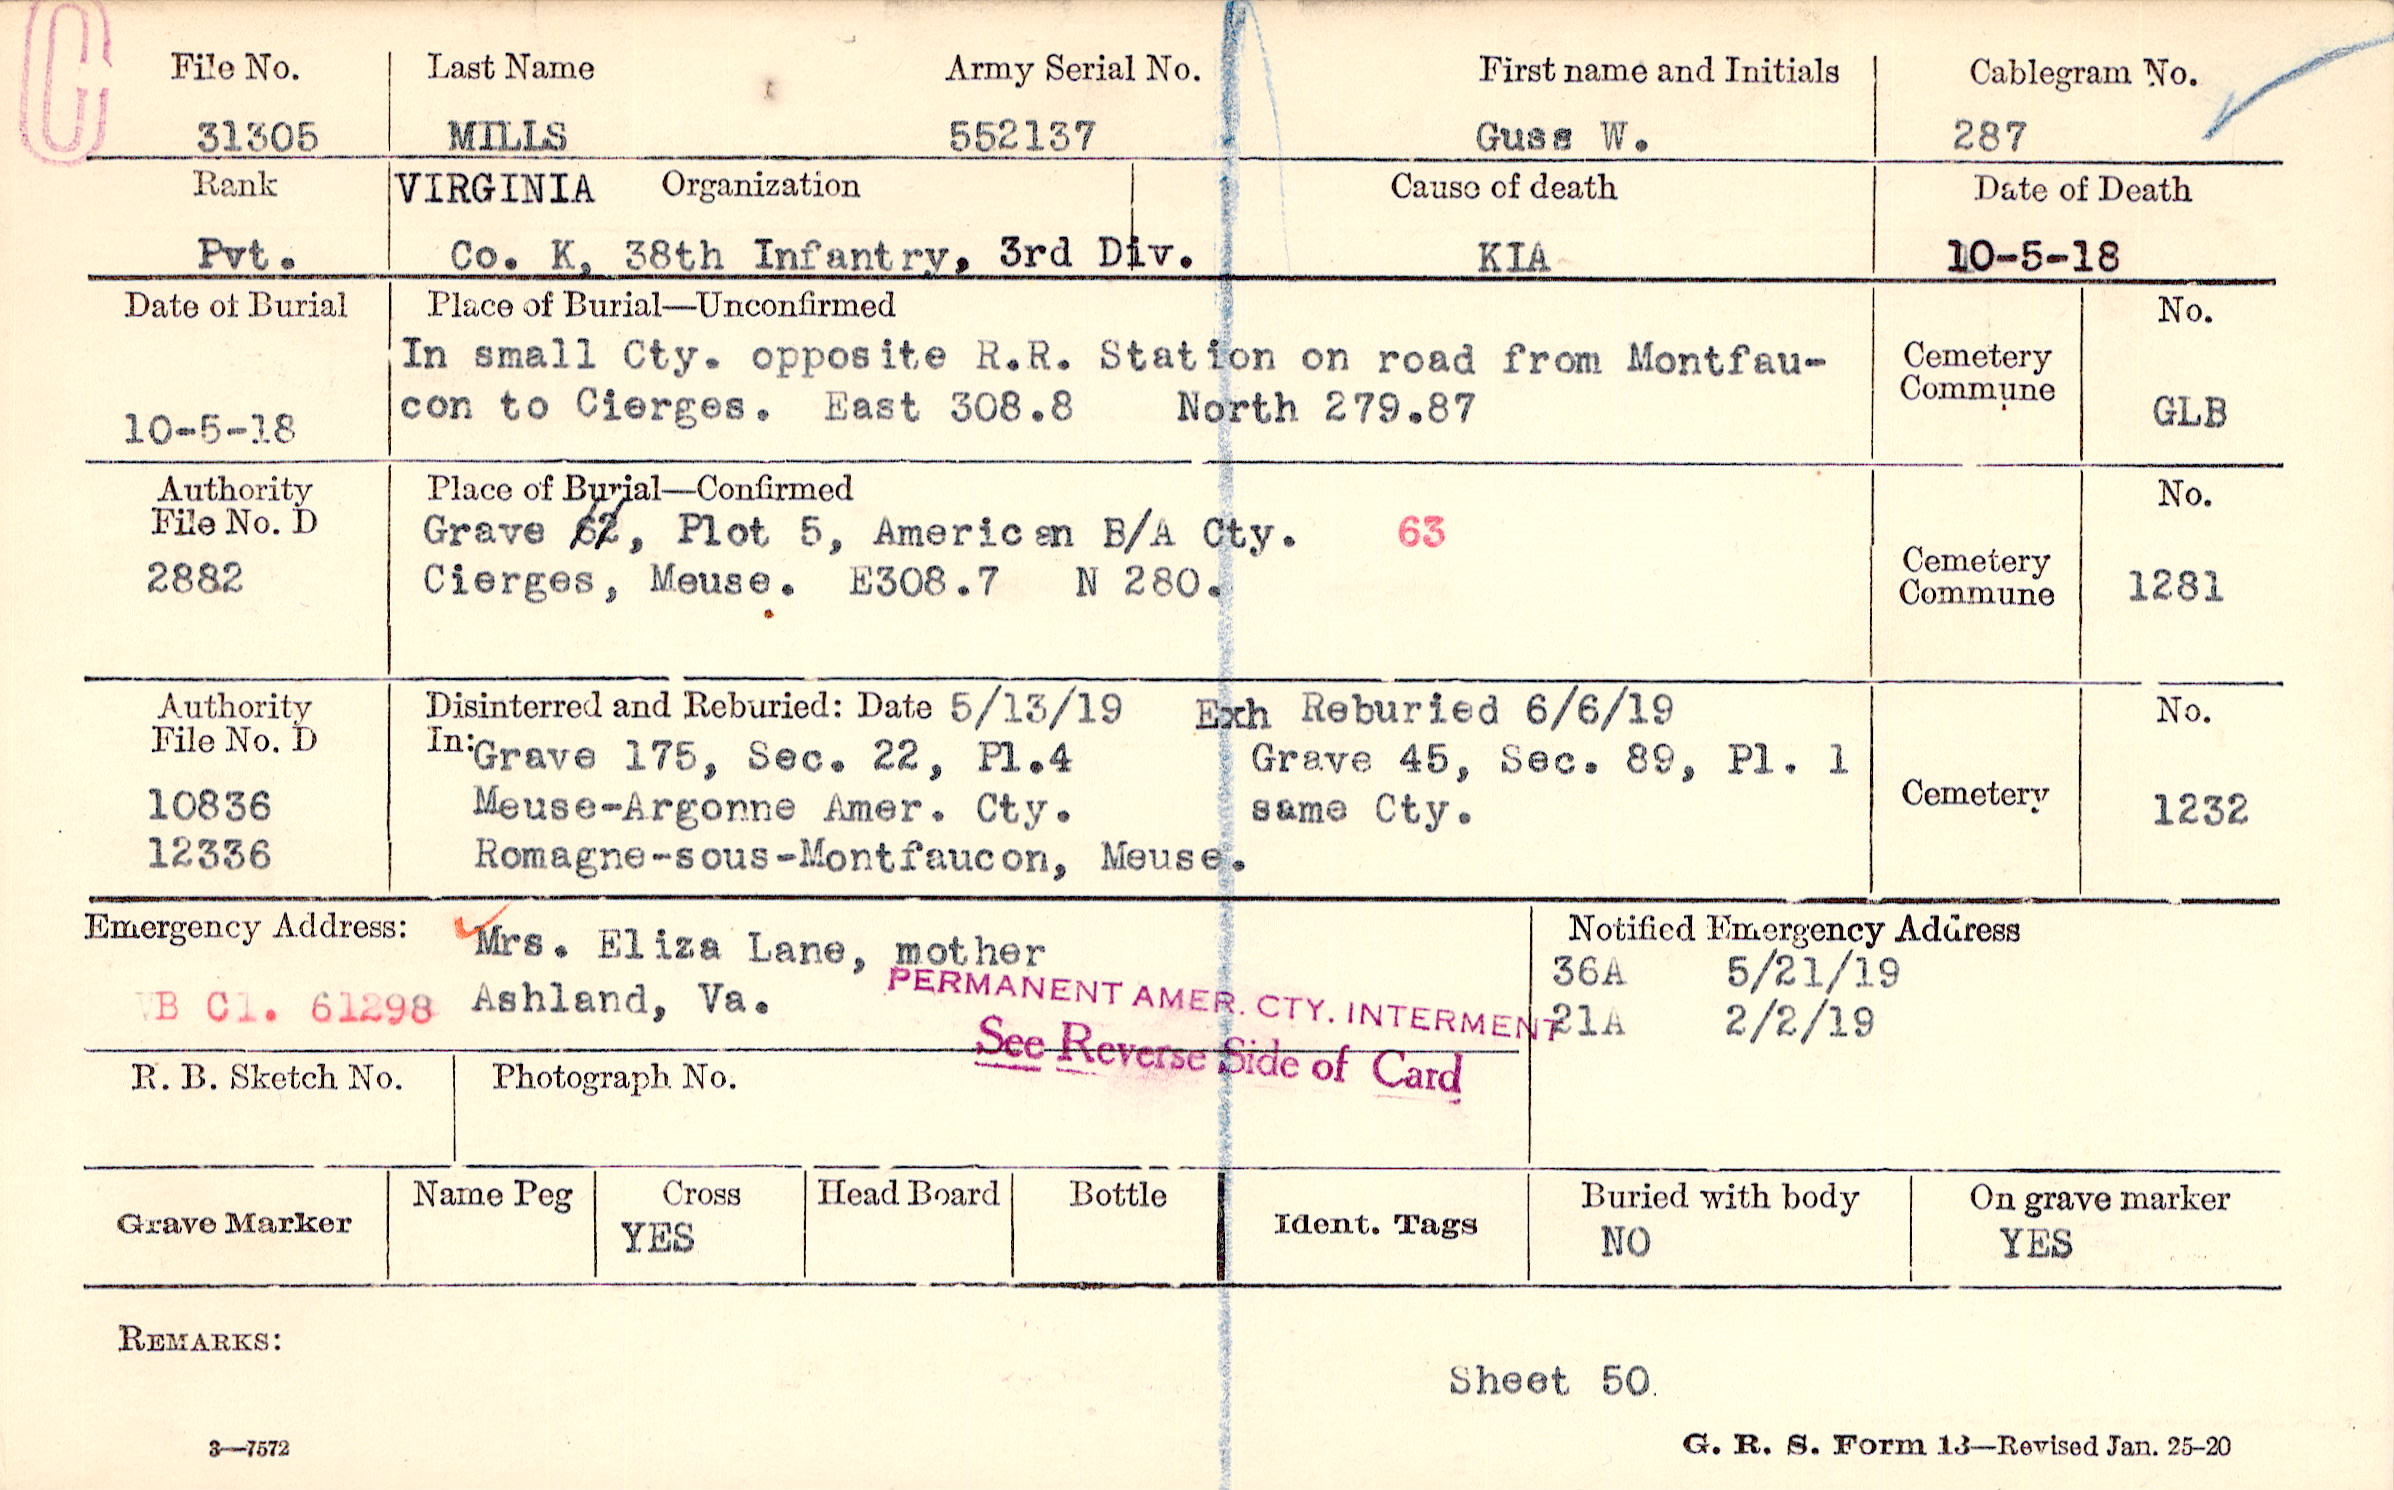 C
File No. Last Name Army Serial No. First name and Initials Cablegram No.
31305 MILLS 552137 Guss W. 287
Rank VIRGINIA Organization Cause of death Date of Death
Pvt. Co. K, 38th Infantry, 3rd Div. KIA 10-5-18
Date of Burial Place of Burial—Unconfirmed No.
In small Cty. opposite R.R. Station on road from Montfau-
con to Cierges. East 308.8 North 279.87
10-5-18 Cemetery
Commune GLB
Authority Place of Burial—Confirmed No.
File No. D Grave 62, Plot 5, American B/A Cty. 63
2882 Cierges, Meuse. E308.7 N 280. Cemetery
Commune 1281
Authority Disinterred and Reburied: Date 5/13/19 Exh Reburied 6/6/19 No.
File No. D In: Grave 175, Sec. 22, Pl.4 Grave 45, Sec. 89, Pl. 1
10836 Meuse-Argonne Amer. Cty. same Cty. Cemetery 1232
12336 Romagne-sous-Montfaucon, Meuse.
Emergency Address: Mrs. Eliza Lane, mother Notified Emergency Address
36A 5/21/19
VB Cl. 61298 Ashland, Va. 21A 2/2/19
PERMANENT AMER. CTY. INTERMENT
See Reverse Side of Card
R. B. Sketch No. Photograph No.
Grave Marker Name Peg Cross Head Board Bottle Ident. Tags Buried with body On grave marker
YES NO YES
REMARKS:
Sheet 50.
3—7572 G. R. S. Form 13—Revised Jan. 25-20